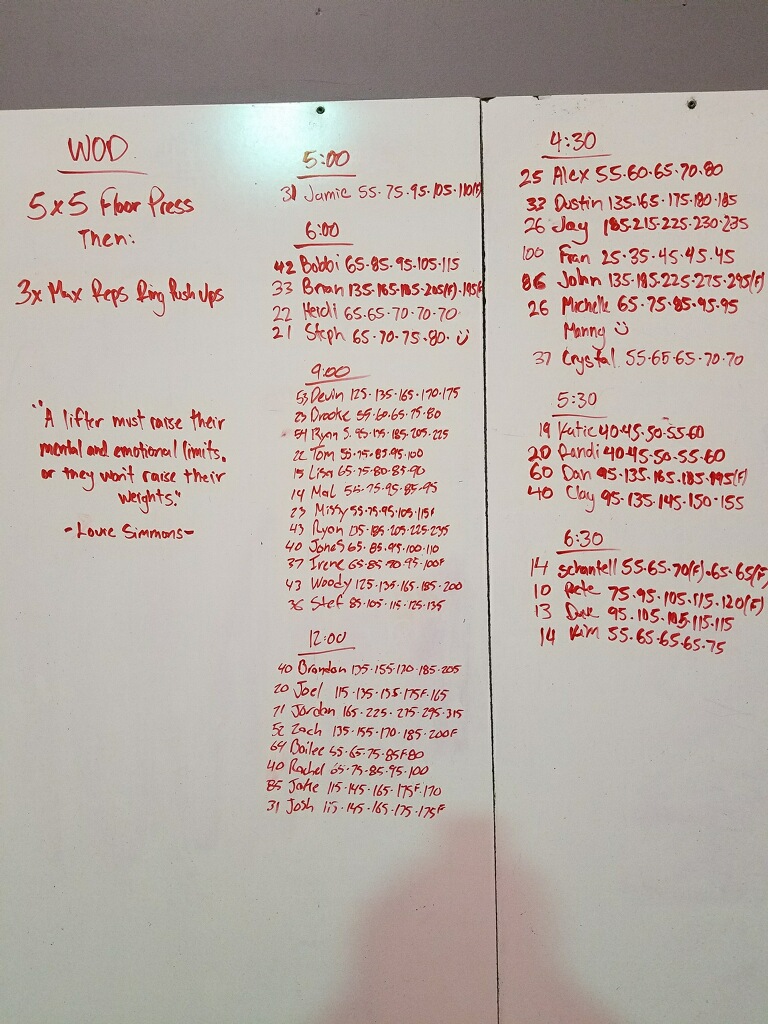 WOD
5x5 Floor Press
Then:
3x Max Reps Ring Push Ups
"A lifter must raise their
mental and emotional limits.
or they won't raise their
weights."
-Louie Simmons-
5:00
31 Jamie 55·75·95·105·110(F)
6:00
42 Bobbi 65·85·95·105·115
33 Brian 135·165·185·205(F)·195(F
22 Heidi 65·65·70·70·70
21 Steph 65·70·75·80· ü
9:00
53 Devin 125·135·165·170·175
23 Brooke 55·60·65·75·80
54 Ryan S. 95·135·185·205·225
22 Tom 55·75·85·95·100
15 Lisa 65·75·80·85·90
14 Mal 55·75·95·85·95
23 Missy 55·75·95·105·115F
43 Ryan 135·185·205·225·235
40 Jonas 65·85·95·100·110
37 Irene 65·85·90·95·100F
43 Woody 125·135·165·185·200
36 Stef 85·105·115·125·135
12:00
40 Brandon 135·155·170·185·205
20 Joel 115·135·135·175F·165
71 Jordan 165·225·275·295·315
52 Zach 135·155·170·185·200F
64 Bailee 55·65·75·85F80
40 Rachel 65·75·85·95·100
85 Jake 115·145·165·175F·170
31 Josh 115·145·165·175·175F
4:30
25 Alex 55·60·65·70·80
33 Dustin 135·165·175·180·185
26 Jay 185·215·225·230·235
100 Fran 25·35·45·45·45
86 John 135·185·225·275·295(F)
26 Michelle 65·75·85·95·95
Manny ü
37 Crystal 55·65·65·70·70
5:30
19 Katie 40·45·50·55·60
20 Randi 40·45·50·55·60
60 Dan 95·135·165·185·195(F)
40 Clay 95·135·145·150·155
6:30
14 Schantell 55·65·70(F)·65·65(F
10 Pete 75·95·105·115·120(F)
13 Dave 95·105·105·115·115
14 Kim 55·65·65·65·75